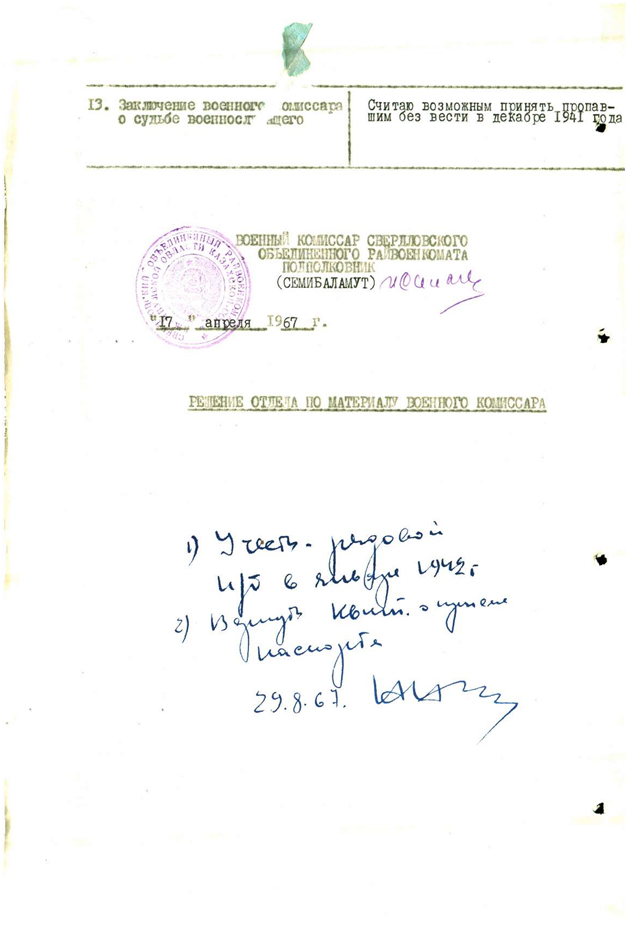 13. Заключение военного комиссара
о судьбе военнослужащего
Считаю возможным принять пропав-
шим без вести в декабре 1941 года
ВОЕННЫЙ КОМИССАР СВЕРДЛОВСКОГО
ОБЪЕДИНЕННОГО РАЙВОЕНКОМАТА
ПОДПОЛКОВНИК
(СЕМИБАЛАМУТ)
"17" апреля 1967 г.
РЕШЕНИЕ ОТДЕЛА ПО МАТЕРИАЛУ ВОЕННОГО КОМИССАРА
1) Учесть - рядовой
в январе 1942 г
2)
паспорта
29.8.67.